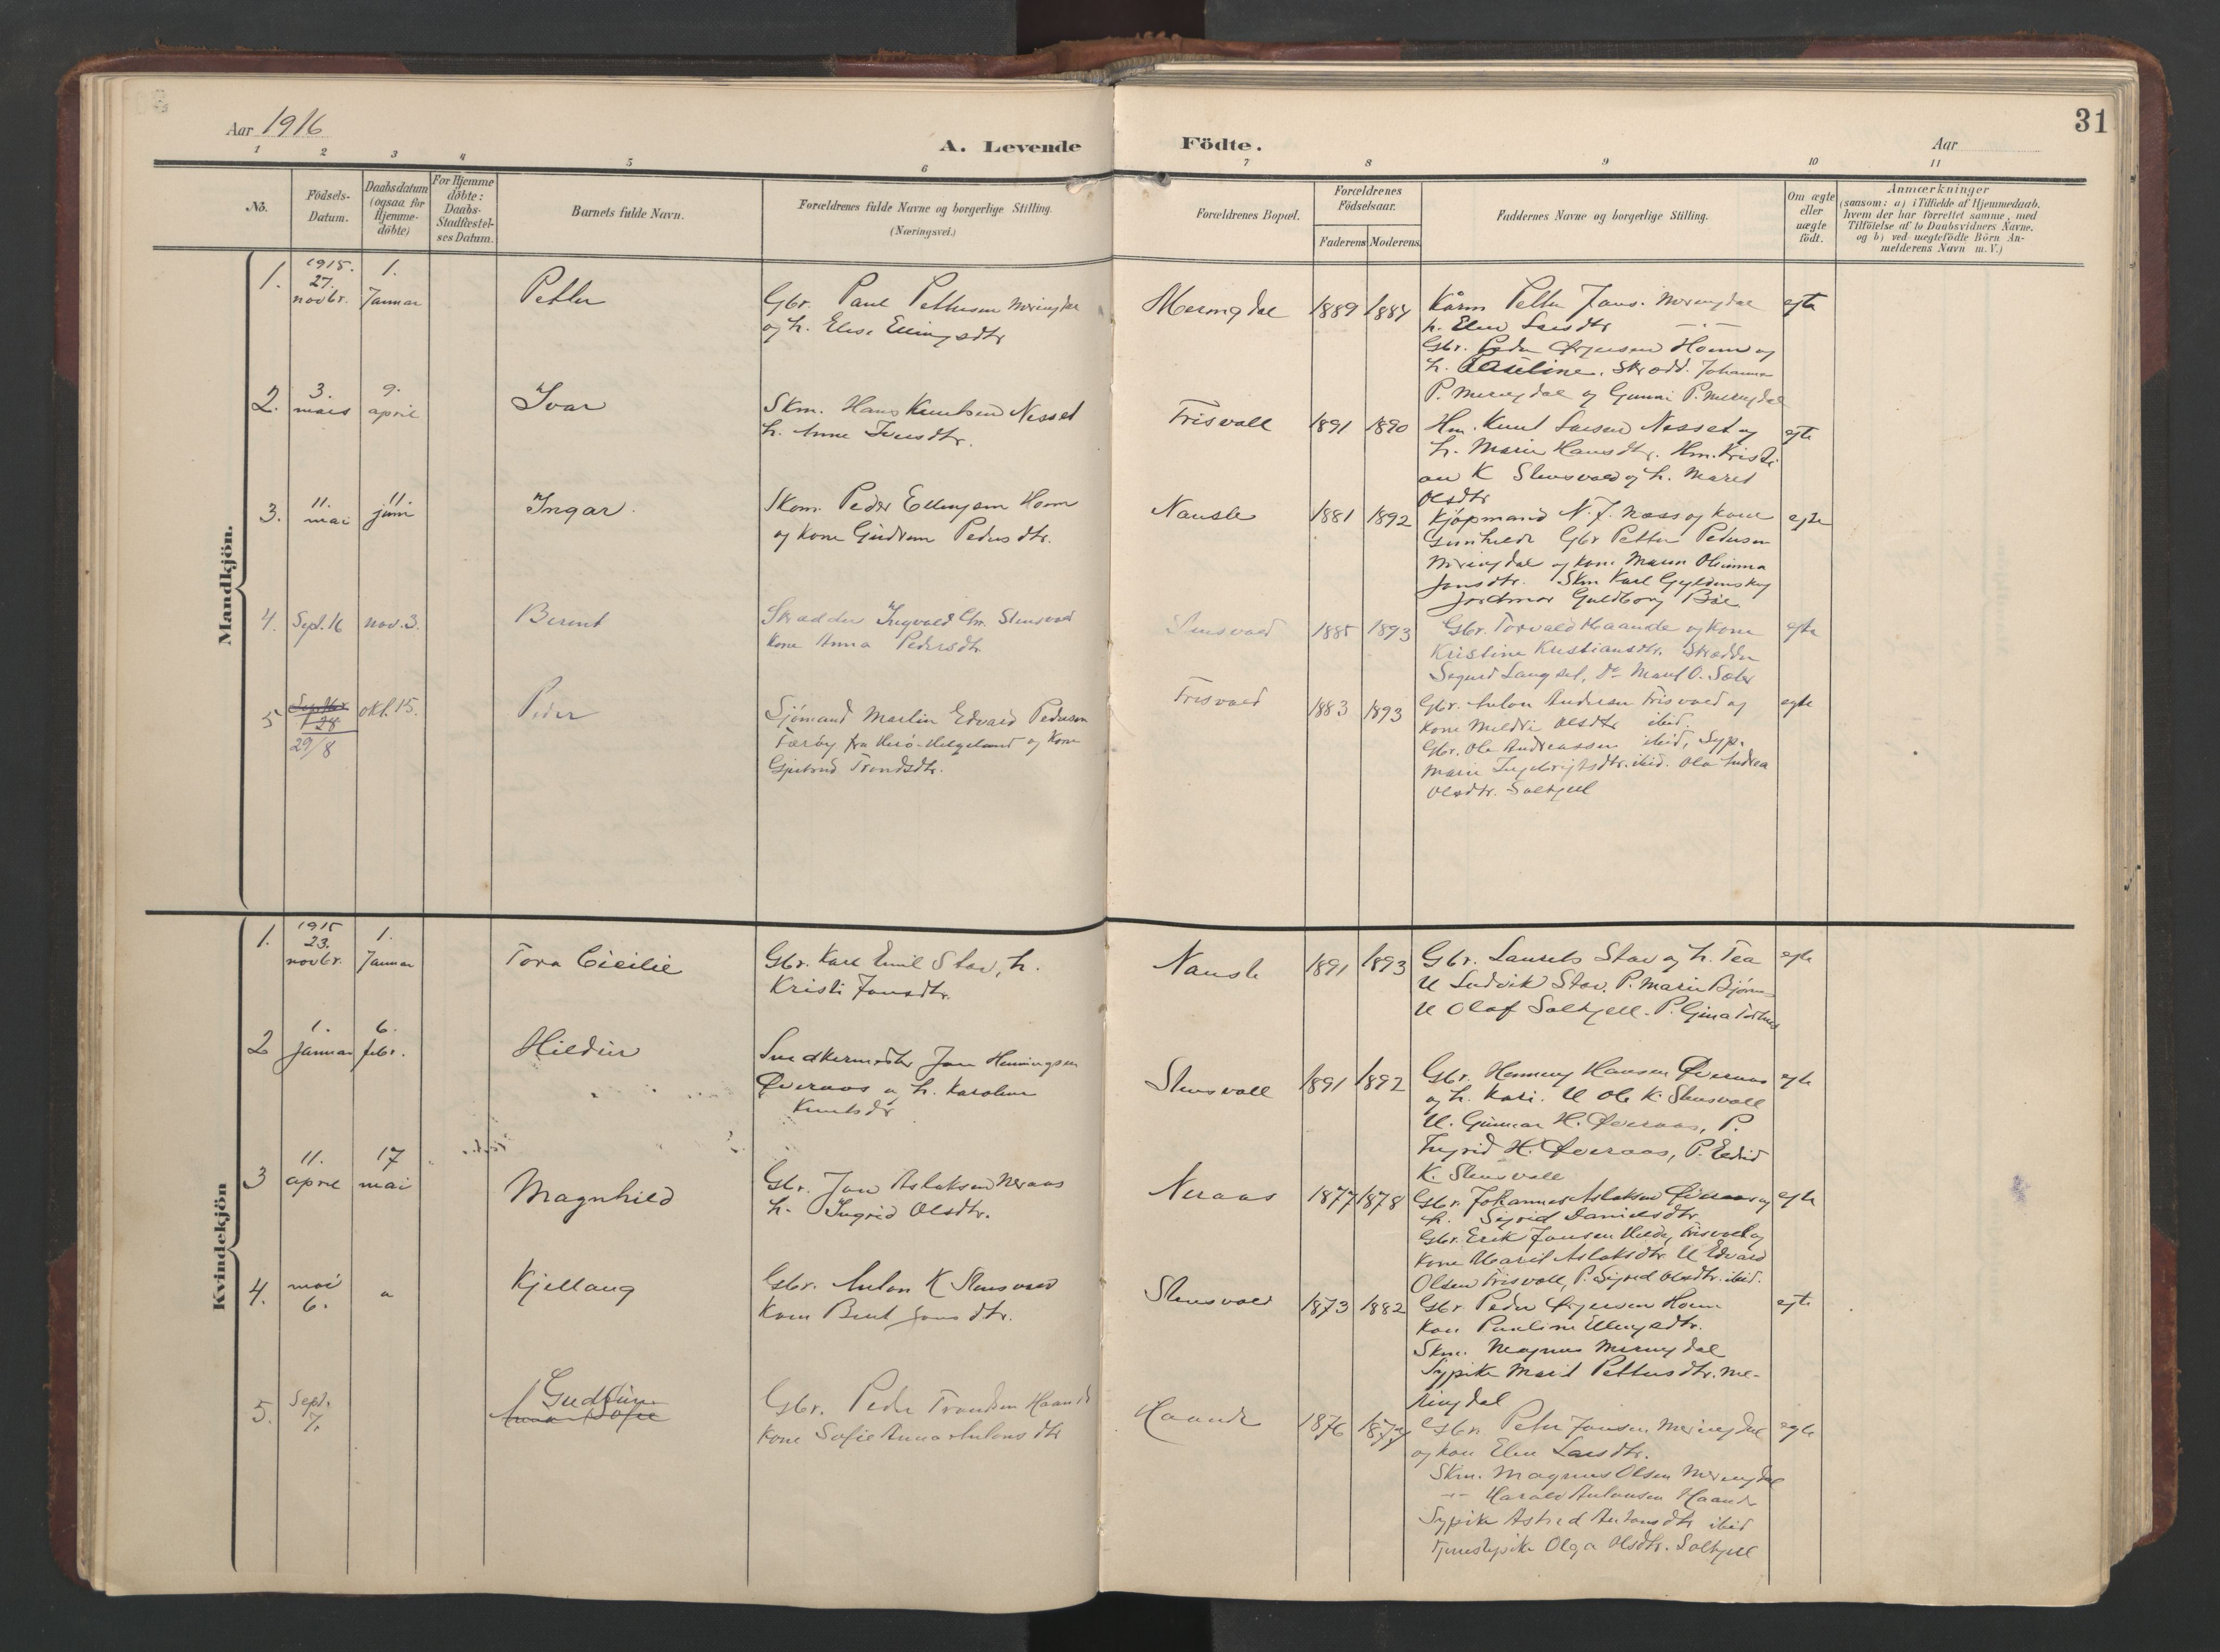 31
Aar 1916
A. Levende Födte.
Aar
1 2 3 4 5 6 7 8 9 10 11
No.
Födsels-
Datum.
Daabsdatum
(ogsaa for
Hjemme-
döbte)
For Hjemme
döbte:
Daabs-
Stadfæstel-
ses Datum.
Barnets fulde Navn.
Forældrenes fulde Navne og borgerlige Stilling.
(Næringsvei.)
Forældrenes Bopæl.
Forældrenes
Födselsaar.
Faderens Moderens
Faddernes Navne og borgerlige Stilling.
Om ægte
eller
uægte
födt.
Anmærkninger
(saasom: a) i Tilfælde af Hjemmedaab.
hvem der har forrettet samme, med
Tilföielse af to Daabsvidners Navne.
og b) ved uægtefödte Börn An-
melderens Navn m.V.)
Mandkjön.
1.
1915.
27.
novbr.
1.
Januar
Petter
Gbr. Paul Pettersen Meringdal
og h. Elise Ellingsdtr
Meringdal
1889 1887
Kårm Petter Jons. Meringdal
h. Elen Larsdtr —.—
Gbr. Peder Ørjensen Horn og
h. Pauline. Skrædd. Johanna
P. Meringdal og Gunni P. Meringdal
egte
2.
3.
mars
9.
april
Ivar
Skm. Hans Knutsen Nesset
h. Anne Iversdtr.
Frisvoll
1891 1890
Hm. Knut Larsen Nesset og
h. Marie Hansdtr. Hm. Kristi
an K Stensvold og h. Marit
Olsdtr
egte
3.
11.
mai
11.
juni
Ingar.
Skom. Peder Ellingsen Horn
og kone Gudrun Pedersdtr.
Nauste
1881 1892
Kjöpmand N. J. Næss og kone
Gunhild Gbr Petter Pedersen
Meringdal og kone Maren Olianna
Jonsdtr. Skm Karl Gyldenskog
Jordmor Guldborg Böe
egte
4.
Sept. 16
nov. 3.
Berent
Skrædder Ingvald Chr. Stensvold
kone Anna Pedersdtr
Stensvold
1885 1893
Gbr. Torvald Haande og kone
Kristine Kristiansdtr. Skrædder
Sigurd Langset, do Marit O. Sæter
egte
5
Septbr
28
29/8
okt. 15.
Peder
Sjömand Martin Edvard Pedersen
Færöy fra Herö - Helgeland og kone
Gjertrud Trondsdtr.
Frisvold
1883 1893
Gbr. Anton Andersen Frisvold og
kone Mildri Olsdtr ibid.
Gbr. Ole Andreassen ibid, Syp.
Marie Ingebrigtsdtr. ibid. Ole Andrea
Olsdtr. Soltjell
egte
Kvindekjön
1.
1915
23.
novbr.
1.
Januar
Tora Cicilie
Gbr. Karl Emil Stav, h.
Kristi Jonsdtr.
Nauste
1891 1893
Gbr. Laurits Stav og h. Tea
U Ludvik Stav. P. Marie Bjørnes
U Olaf Soltjell. P. Gina
egte
2
1.
Januar
6.
febr.
Hildur
Snedkermester Jon Henningsen
Øveraas og h. Karoline
Knutsdr
Stensvoll
1891 1892
Gbr. Henning Hansen Øveraas
og h. Kari. U Ole K. Stensvoll
U. Gunnar H. Øveraas, P.
Ingrid H. Øveraas, P. Eldrid
K. Stensvoll
egte
3
11.
april
17
mai
Magnhild
Gbr. Jon Aslaksen Neraas
h. Ingrid Olsdtr.
Neraas
1877 1878
Gbr. Johannes Aslaksen Øveraas og
h. Sigrid Danielsdtr
Gbr. Erik Jonsen Hilde, Frisvoll og
kone Marit Aslaksdtr. U Edvard
Olsen Frisvoll, P. Sigrid Olsdtr. ibid.
egte
4.
mai
6.
"
Kjellaug
Gbr. Anton K Stensvold
kone Berit Jonsdtr.
Stensvold
1873 1882
Gbr Peder Ørjensen Horn
kone Pauline Ellingsdtr.
Skm. Magnus Meringdal
Sypike Marit Pettersdtr. Me-
ringdal
egte
5.
Sept.
7.
Gudrun
Anna Sofie
Gbr. Peder Trondsen Haande
kone Sofie Anna Antonsdtr
Haande
1876 1877
Gbr. Peter Jonsen Meringdal
og kone Elen Larsdtr.
Skm. Magnus Olsen Meringdal
—"— Harald Antonsen Haande
Sypike Astrid Antonsdtr ibid
Tjenestepike Olga Olsdtr. Soltjell
egte